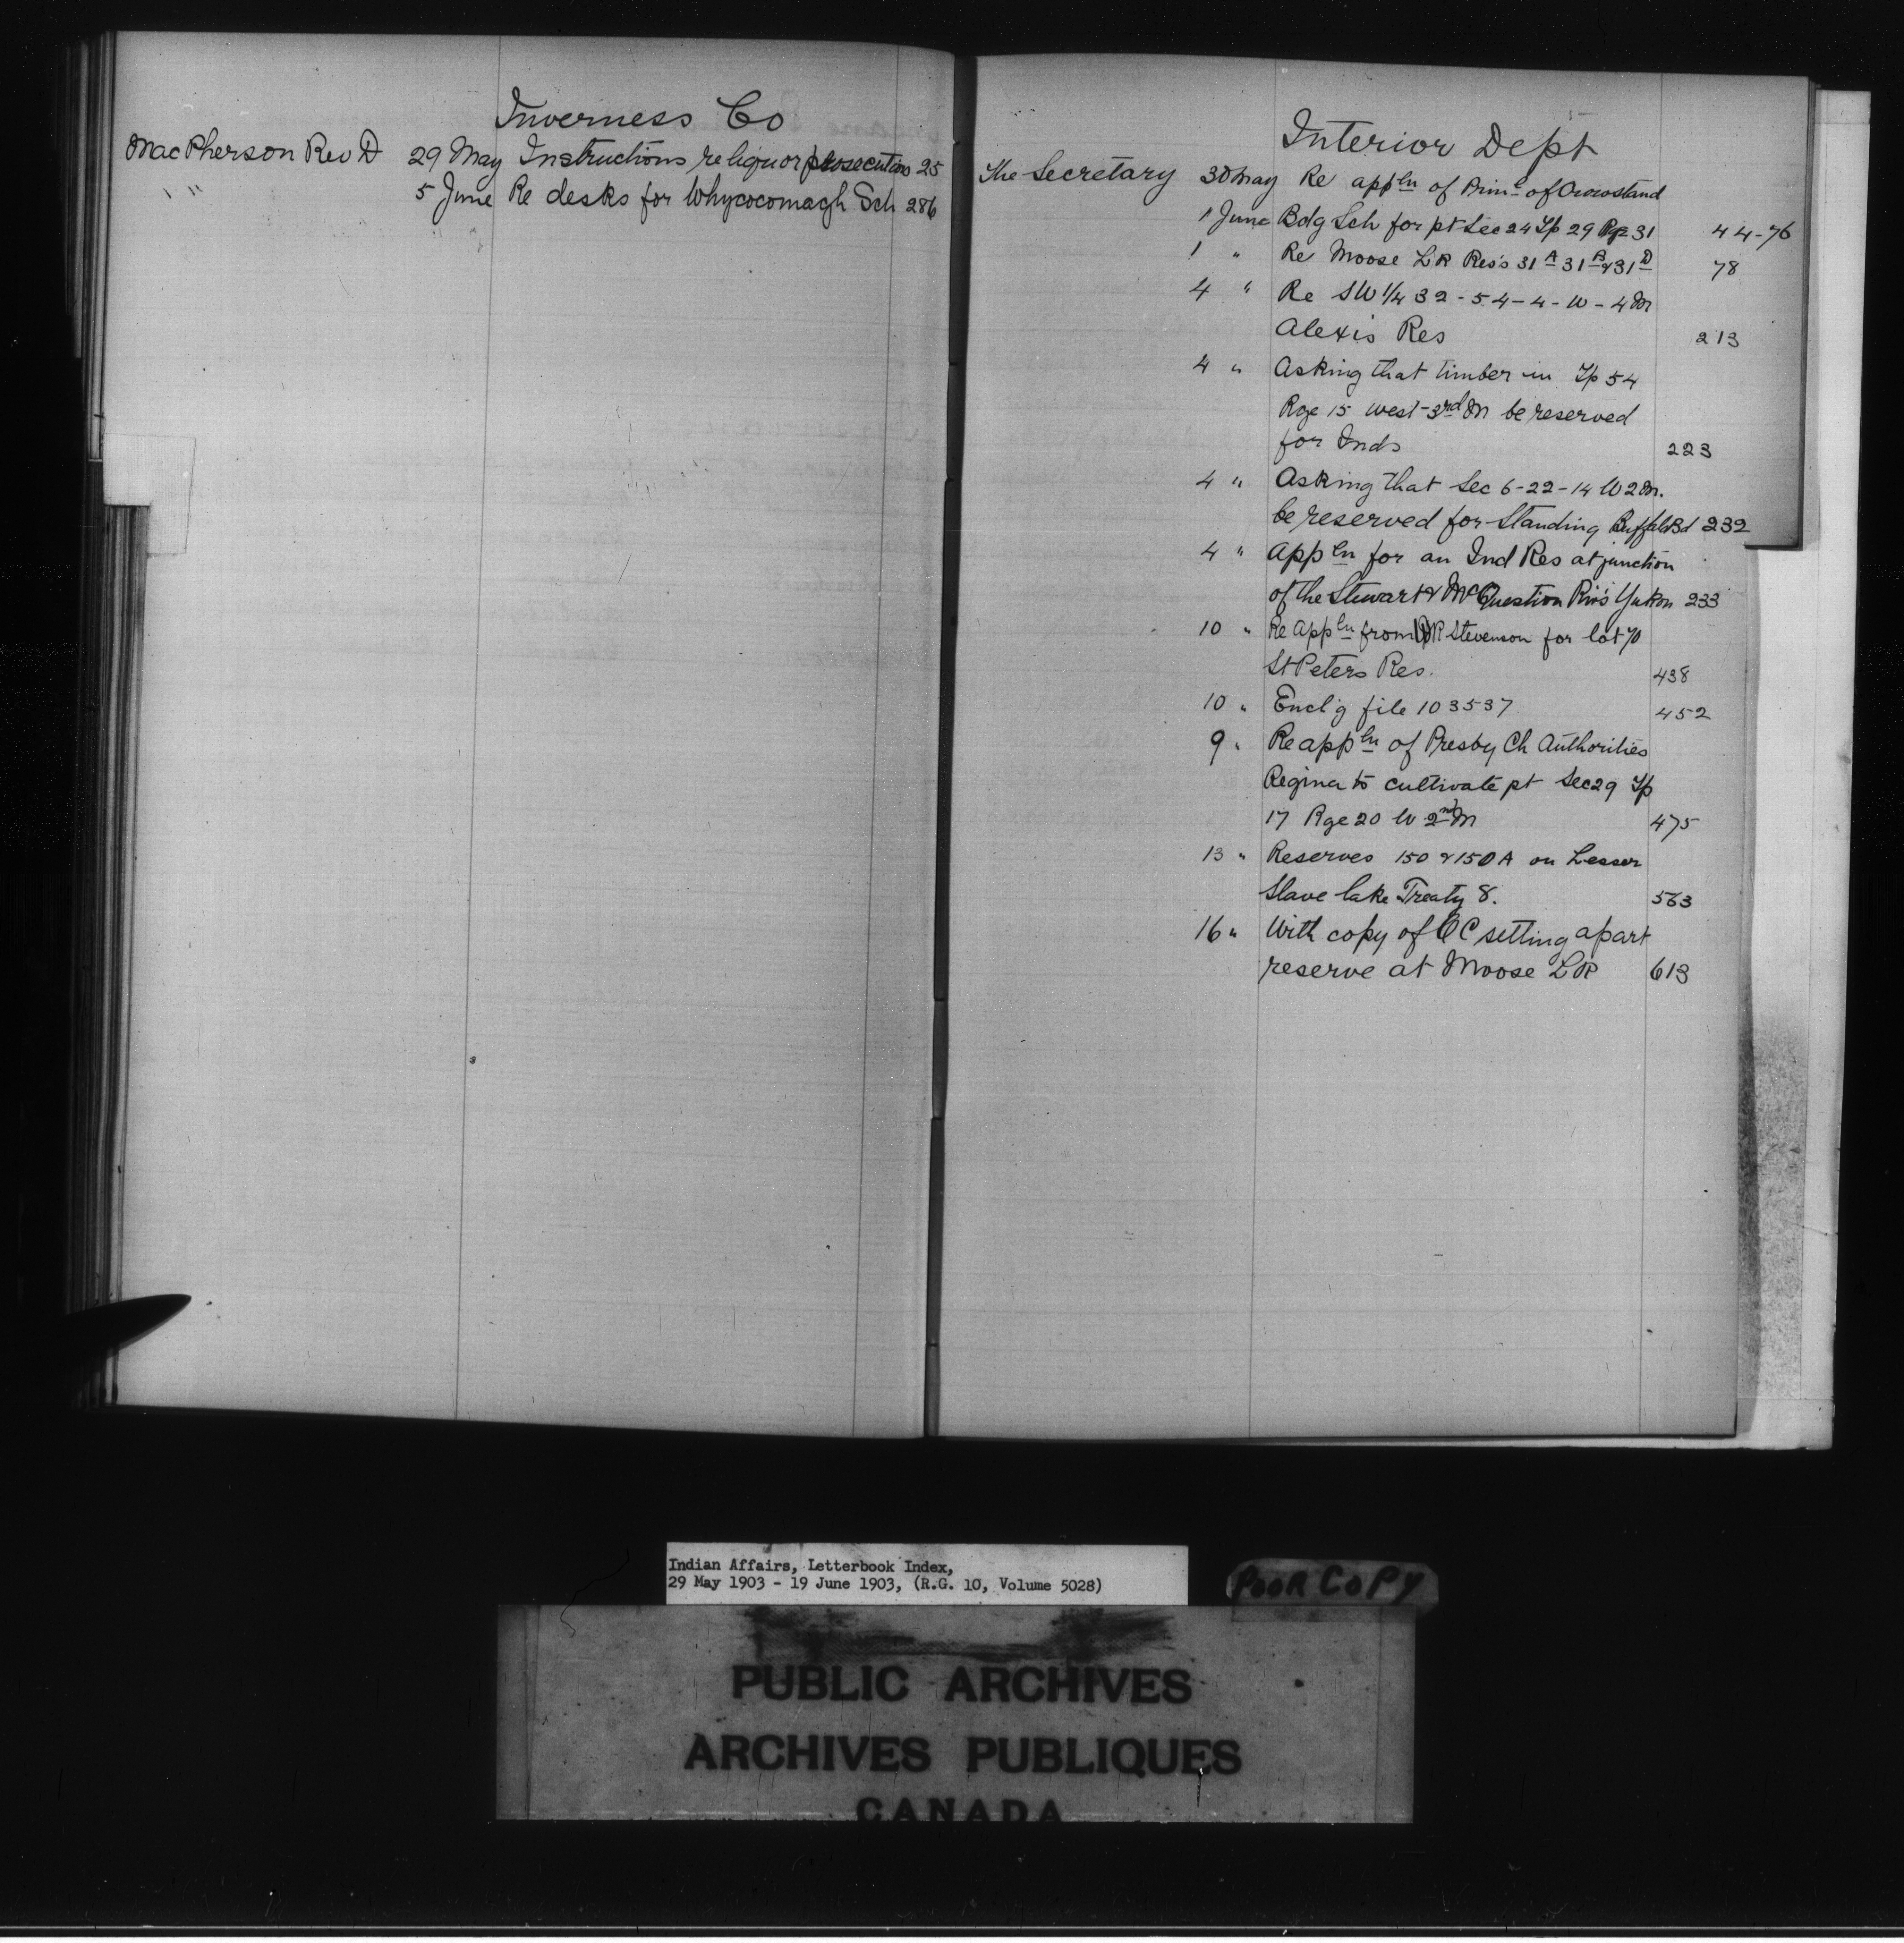 Inverness Co
MacPherson Rev D 29 May Instructions re liquor prosecutions 25
" " 5 June Re desks for Whycocomagh Sch 286
Interior Dept
The Secretary 30 May Re appln of Prinl of Crowstand
1 June Bdg Sch for pt Sec 24 Tp 29 Rge 31 44-76
1 " Re Moose L R Res's 31A 31B & 31D 78
4 " Re SW 1/4 32-54-4-W-4M
Alexis Res 213
4 " Asking that timber in Tp 54
Rge 15 west 3rd M be reserved
for Inds 223
4 " Asking that Sec 6-22-14 W 2 M.
be reserved for Standing Buffalo Bd 232
4 " Appln for an Ind Res at junction
of the Stewart & McQuestion Riv's Yukon 233
10 " Re Appln from R Stevenson for lot 70
St Peters Res. 438
10 " Encl'g file 103537 452
9 " Re appln of Presby Ch Authorities
Regina to cultivate pt Sec 29 Tp
17 Rge 20 W 2nd M 475
13 " Reserves 150 & 150A on Lesser
Slave lake Treaty 8. 563
16 " With copy of OC setting apart
reserve at Moose L R 613
Indian Affairs, Letterbook Index,
29 May 1903 - 19 June 1903, (R.G. 10, Volume 5028)
POOR COPY
PUBLIC ARCHIVES
ARCHIVES PUBLIQUES
CANADA